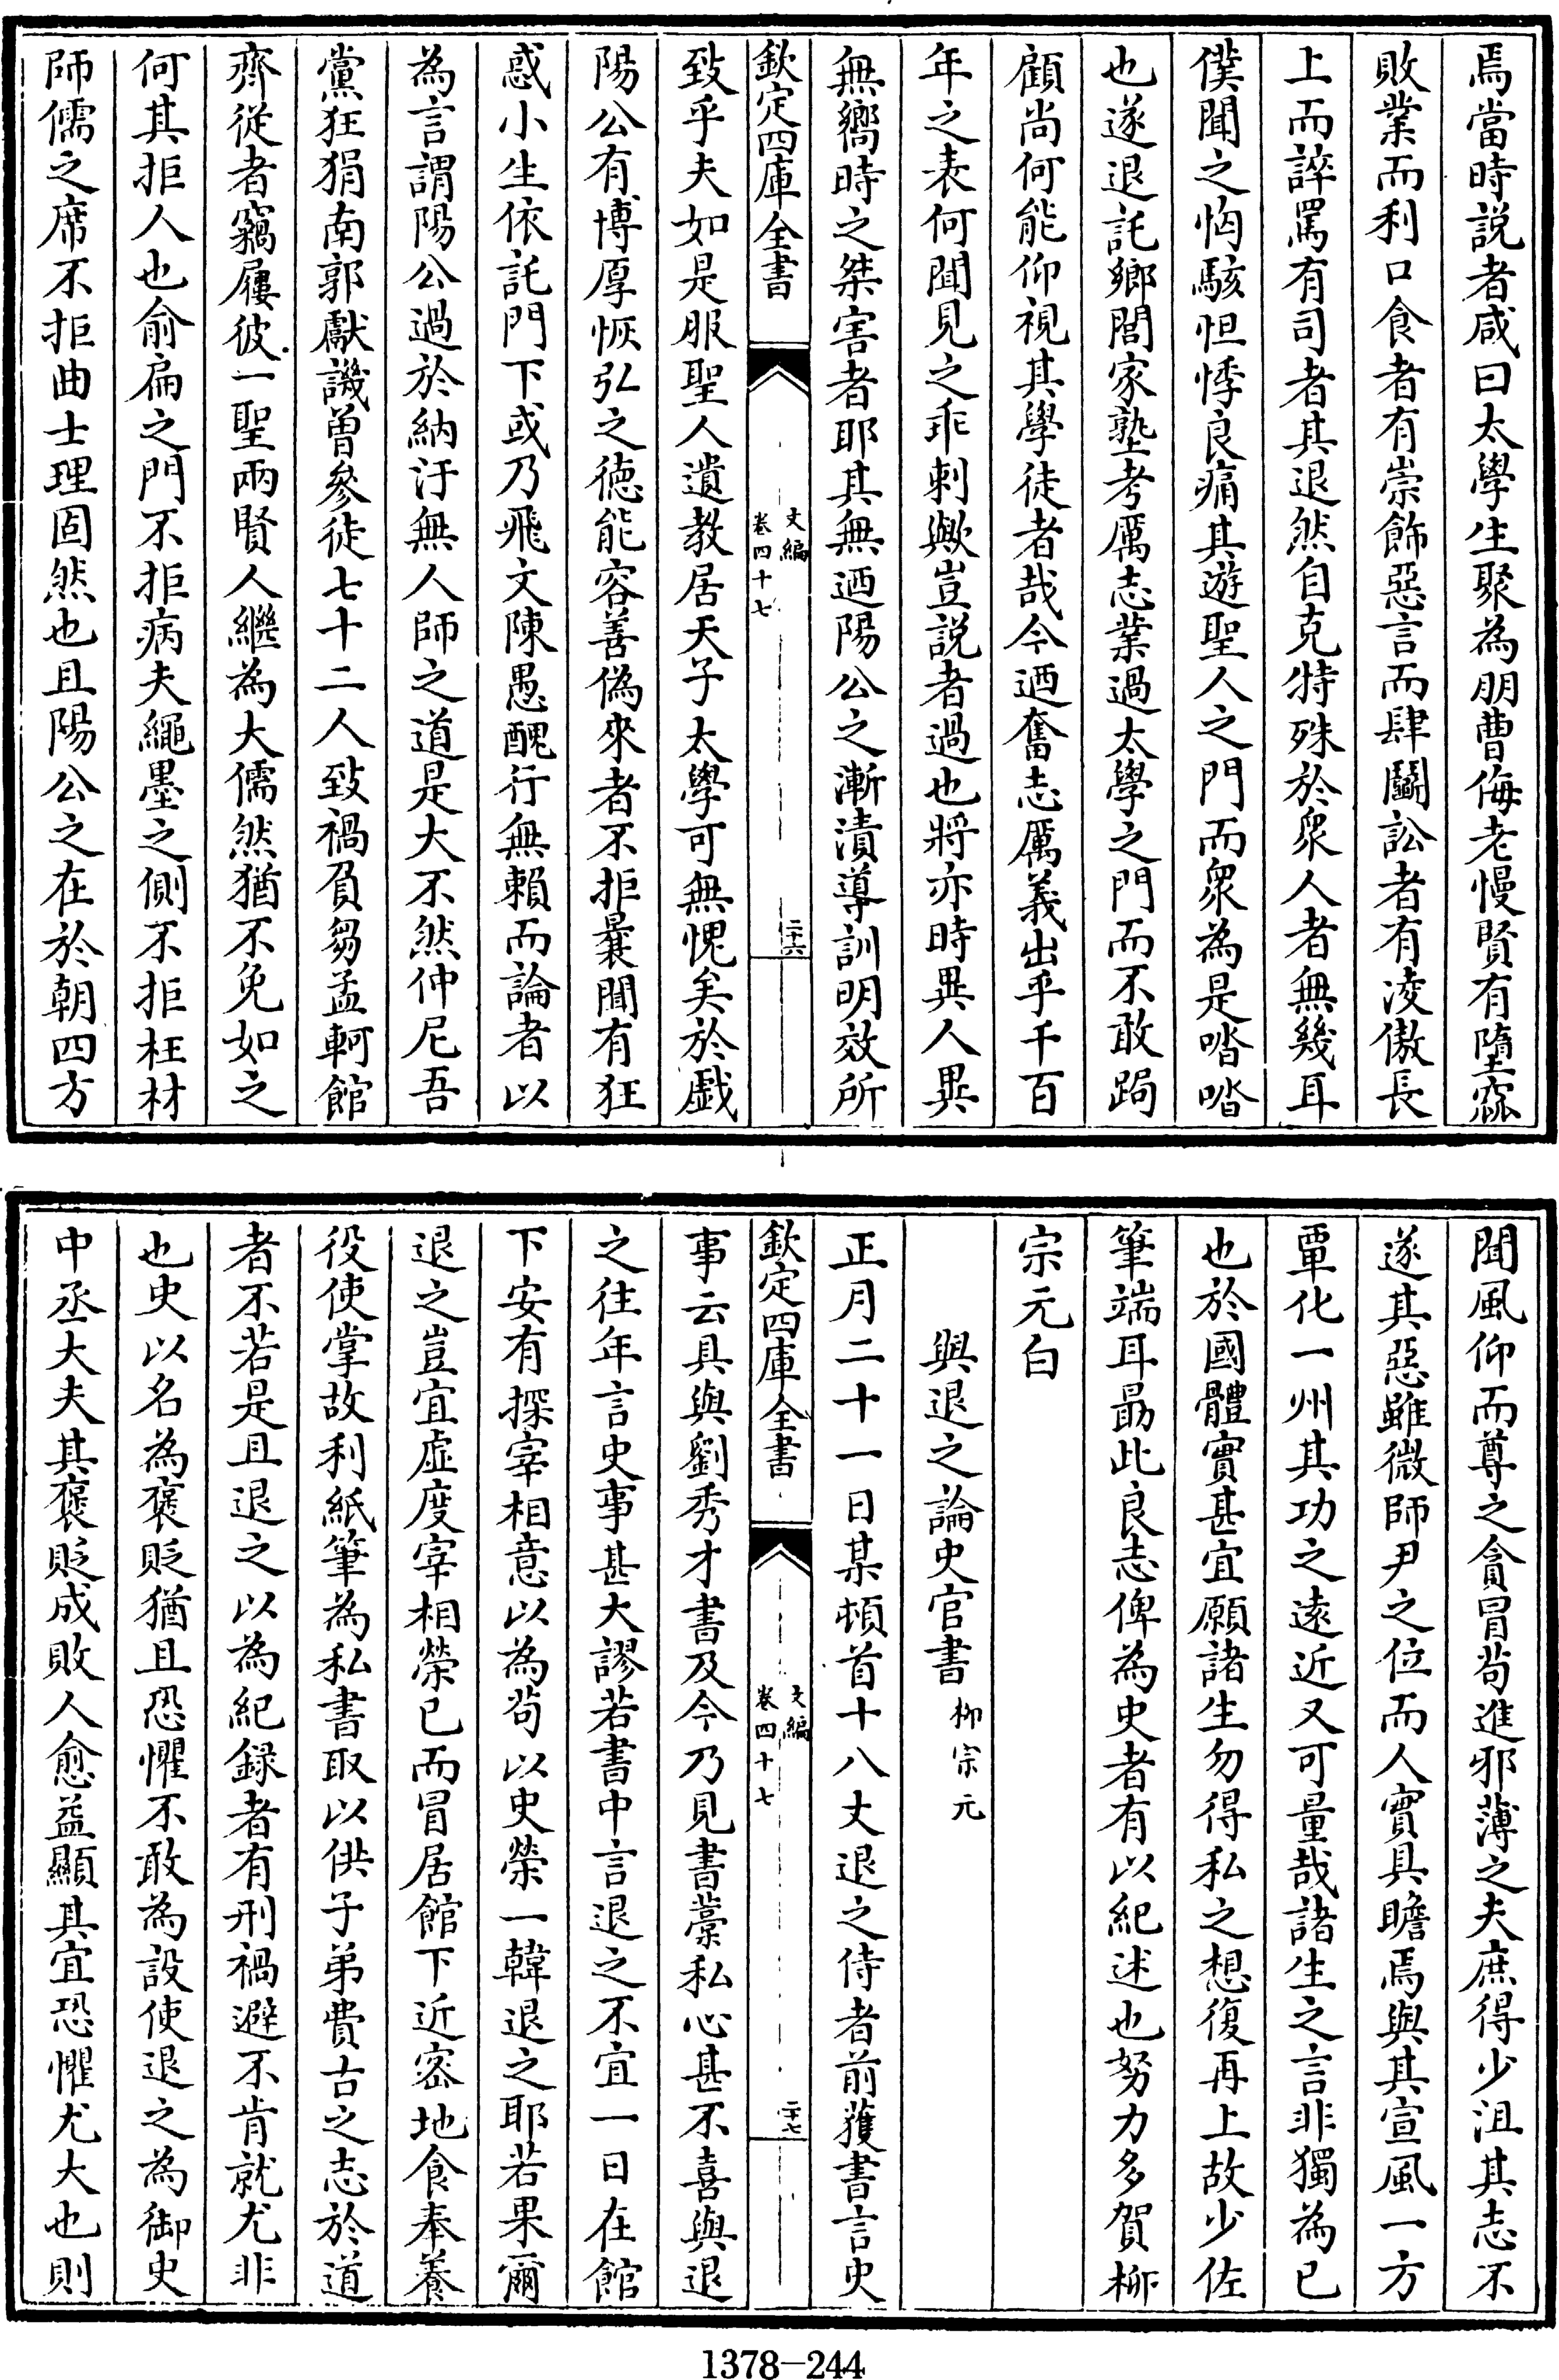 焉當時說者咸曰太學生聚為朋曹侮老慢賢有墮窳
敗業而利口食者有崇飾惡言而肆鬭訟者有凌傲長
上而誶罵有司者其退然自克特殊於衆人者無幾耳
僕聞之恟駭怛悸良痛其遊聖人之門而衆為是喈喈
也遂退託鄉閭家塾考厲志業過太學之門而不敢跼
顧尚何能仰視其學徒者哉今迺奮志厲義出乎千百
年之表何聞見之乖剌歟豈說者過也將亦時異人異
無嚮時之桀害者耶其無迺陽公之漸漬導訓明效所
欽定四庫全書
文編
卷四十七
二十六
致乎夫如是服聖人遺教居天子太學可無愧矣於戲
陽公有博厚恢弘之徳能容善偽來者不拒曩聞有狂
惑小生依託門下或乃飛文陳愚醜行無賴而論者以
為言謂陽公過於納汙無人師之道是大不然仲尼吾
黨狂狷南郭獻譏曾參徒七十二人致禍負芻孟軻館
齊從者竊屨彼一聖兩賢人繼為大儒然猶不免如之
何其拒人也俞扁之門不拒病夫繩墨之側不拒枉材
師儒之席不拒曲士理固然也且陽公之在於朝四方
聞風仰而尊之貪冒苟進邪薄之夫庶得少沮其志不
遂其惡雖微師尹之位而人實具瞻焉與其宣風一方
覃化一州其功之遠近又可量哉諸生之言非獨為己
也於國體實甚宜願諸生勿得私之想復再上故少佐
筆端耳勗此良志俾為史者有以紀述也努力多賀柳
宗元白
與退之論史官書 柳宗元
正月二十一日某頓首十八丈退之侍者前獲書言史
欽定四庫全書
文編
卷四十七
二十七
事云具與劉秀才書及今乃見書藁私心甚不喜與退
之往年言史事甚大謬若書中言退之不宜一日在館
下安有探宰相意以為茍以史榮一韓退之耶若果爾
退之豈宜虛度宰相榮已而冒居館下近密地食奉養
役使掌故利紙筆為私書取以供子弟費古之志於道
者不若是且退之以為紀録者有刑禍避不肯就尤非
也史以名為褒貶猶且恐懼不敢為設使退之為御史
中丞大夫其褒貶成敗人愈益顯其宜恐懼尤大也則
1378-244